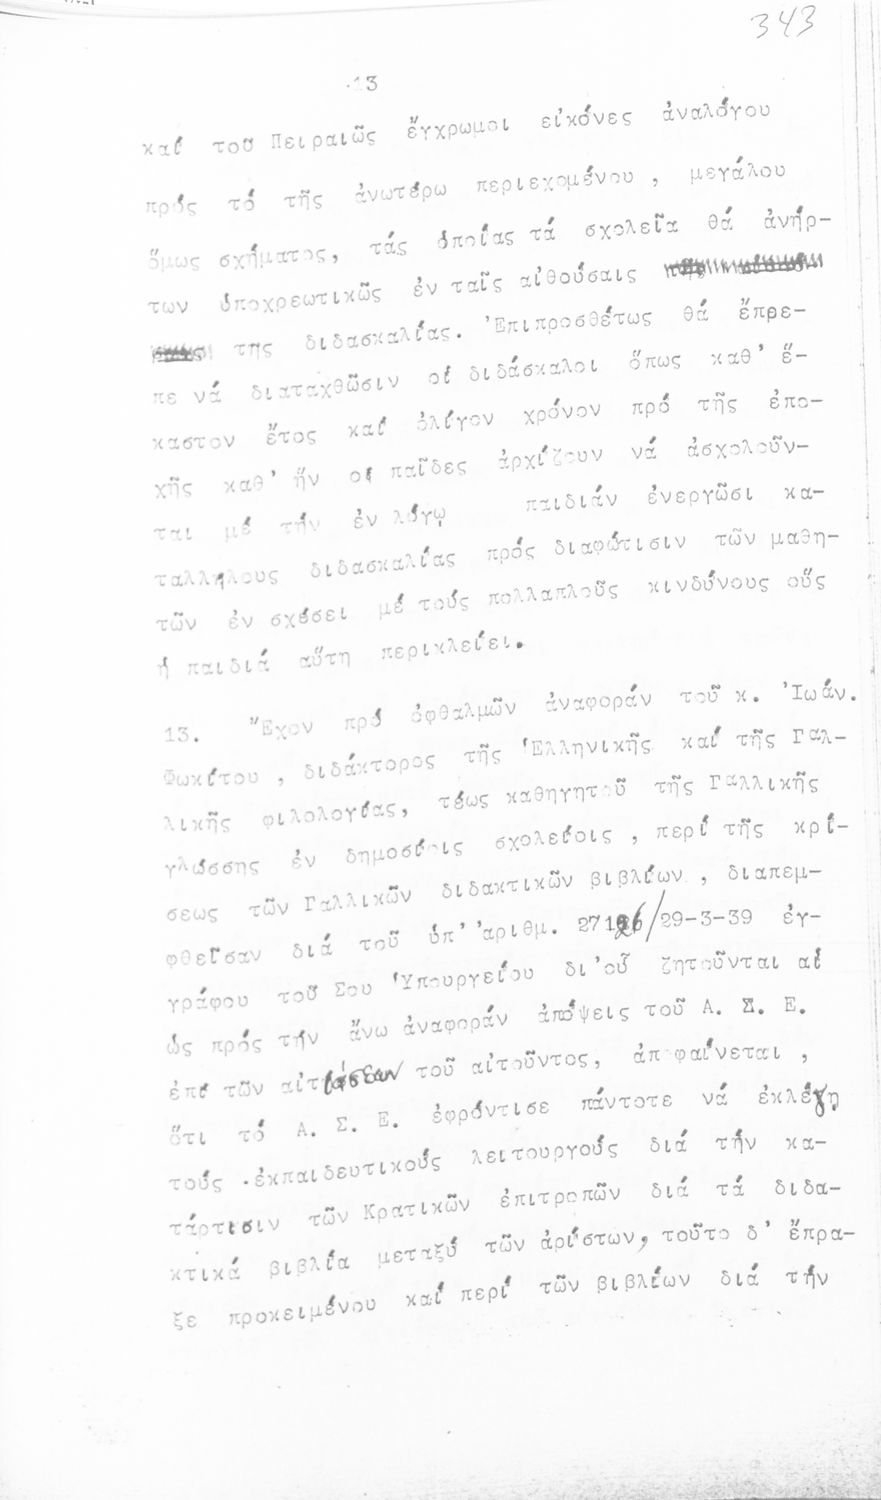 343
13
καί τοῦ Πειραιῶς ἔγχρωμοι εἰκόνες ἀναλόγου
πρός τό τῆς ἀνωτέρω περιεχομένου , μεγάλου
ὅμως σχήματος, τάς ὁποίας τά σχολεῖα θά ἀνήρ-
των ὑποχρεωτικῶς ἐν ταῖς αἰθούσαις
της διδασκαλίας. Ἐπιπροσθέτως θά ἔπρε-
πε νά διαταχθῶσιν οἱ διδάσκαλοι ὅπως καθ' ἕ-
καστον ἔτος καί ὀλίγον χρόνον πρό τῆς ἐπο-
χῆς καθ' ἥν οἱ παῖδες ἀρχίζουν νά ἀσχολοῦν-
ται μέ τήν ἐν λόγῳ παιδιάν ἐνεργῶσι κα-
ταλλήλους διδασκαλίας πρός διαφώτισιν τῶν μαθη-
τῶν ἐν σχέσει μέ τούς πολλαπλοῦς κινδύνους οὕς
ἡ παιδιά αὕτη περικλείει.
13. Ἔχον πρό ὀφθαλμῶν ἀναφοράν τοῦ κ. Ἰωάν.
Φωκίτου , διδάκτορος τῆς Ἑλληνικῆς καί τῆς Γαλ-
λικῆς φιλολογίας, τέως καθηγητοῦ τῆς Γαλλικῆς
γλώσσης ἐν δημοσίοις σχολείοις , περί τῆς κρί-
σεως τῶν Γαλλικῶν διδακτικῶν βιβλίων , διαπεμ-
φθεῖσαν διά τοῦ ὑπ' ἀριθμ. 27126/29-3-39 ἐγ-
γράφου τοῦ Σου Ὑπουργείου δι'οὗ ζητοῦνται αἱ
ὡς πρός τήν ἄνω ἀναφοράν ἀπόψεις τοῦ Α. Σ. Ε.
ἐπί τῶν αἰτιάσεων τοῦ αἰτοῦντος, ἀποφαίνεται ,
ὅτι τό Α. Σ. Ε. ἐφρόντισε πάντοτε νά ἐκλέγη
τούς ἐκπαιδευτικούς λειτουργούς διά τήν κα-
τάρτισιν τῶν Κρατικῶν ἐπιτροπῶν διά τά διδα-
κτικά βιβλία μεταξύ τῶν ἀρίστων, τοῦτο δ' ἔπρα-
ξε προκειμένου καί περί τῶν βιβλίων διά τήν